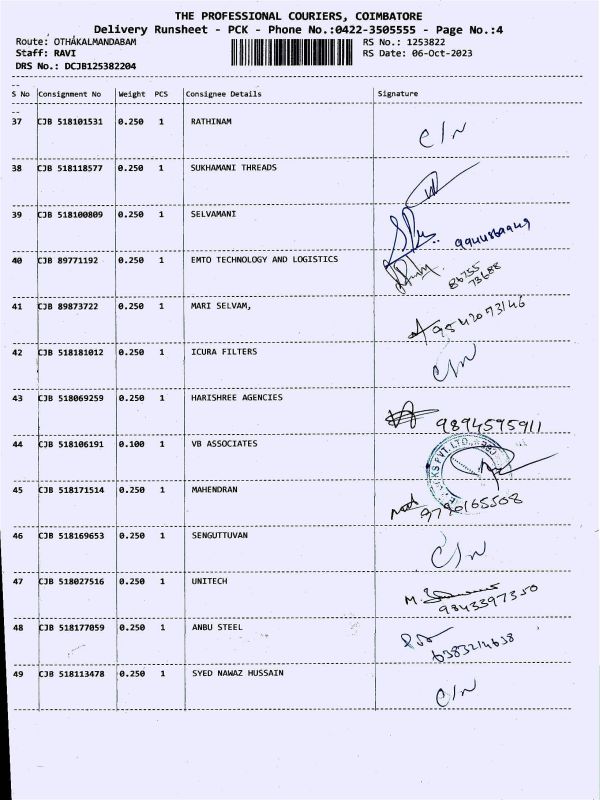 THE PROFESSIONAL COURIERS, COIMBATORE
Delivery Runsheet - PCK - Phone No.:0422-3505555 - Page No.:4
Route: OTHAKALMANDABAM
RS No.: 1253822
Staff: RAVI
RS Date: 06-Oct-2023
DRS No.: DCJB125382204
S No Consignment No Weight PCS Consignee Details Signature
37 CJB 518101531 0.250 1 RATHINAM C/N
38 CJB 518118577 0.250 1 SUKHAMANI THREADS
39 CJB 518100809 0.250 1 SELVAMANI
40 CJB 89771192 0.250 1 EMTO TECHNOLOGY AND LOGISTICS 86755 73688
41 CJB 89873722 0.250 1 MARI SELVAM, 9842073146
42 CJB 518181012 0.250 1 ICURA FILTERS C/N
43 CJB 518069259 0.250 1 HARISHREE AGENCIES 9894595911
44 CJB 518106191 0.100 1 VB ASSOCIATES PVT. LTD.
45 CJB 518171514 0.250 1 MAHENDRAN 9790165508
46 CJB 518169653 0.250 1 SENGUTTUVAN C/N
47 CJB 518027516 0.250 1 UNITECH 9843397350
48 CJB 518177059 0.250 1 ANBU STEEL 6383214638
49 CJB 518113478 0.250 1 SYED NAWAZ HUSSAIN C/N